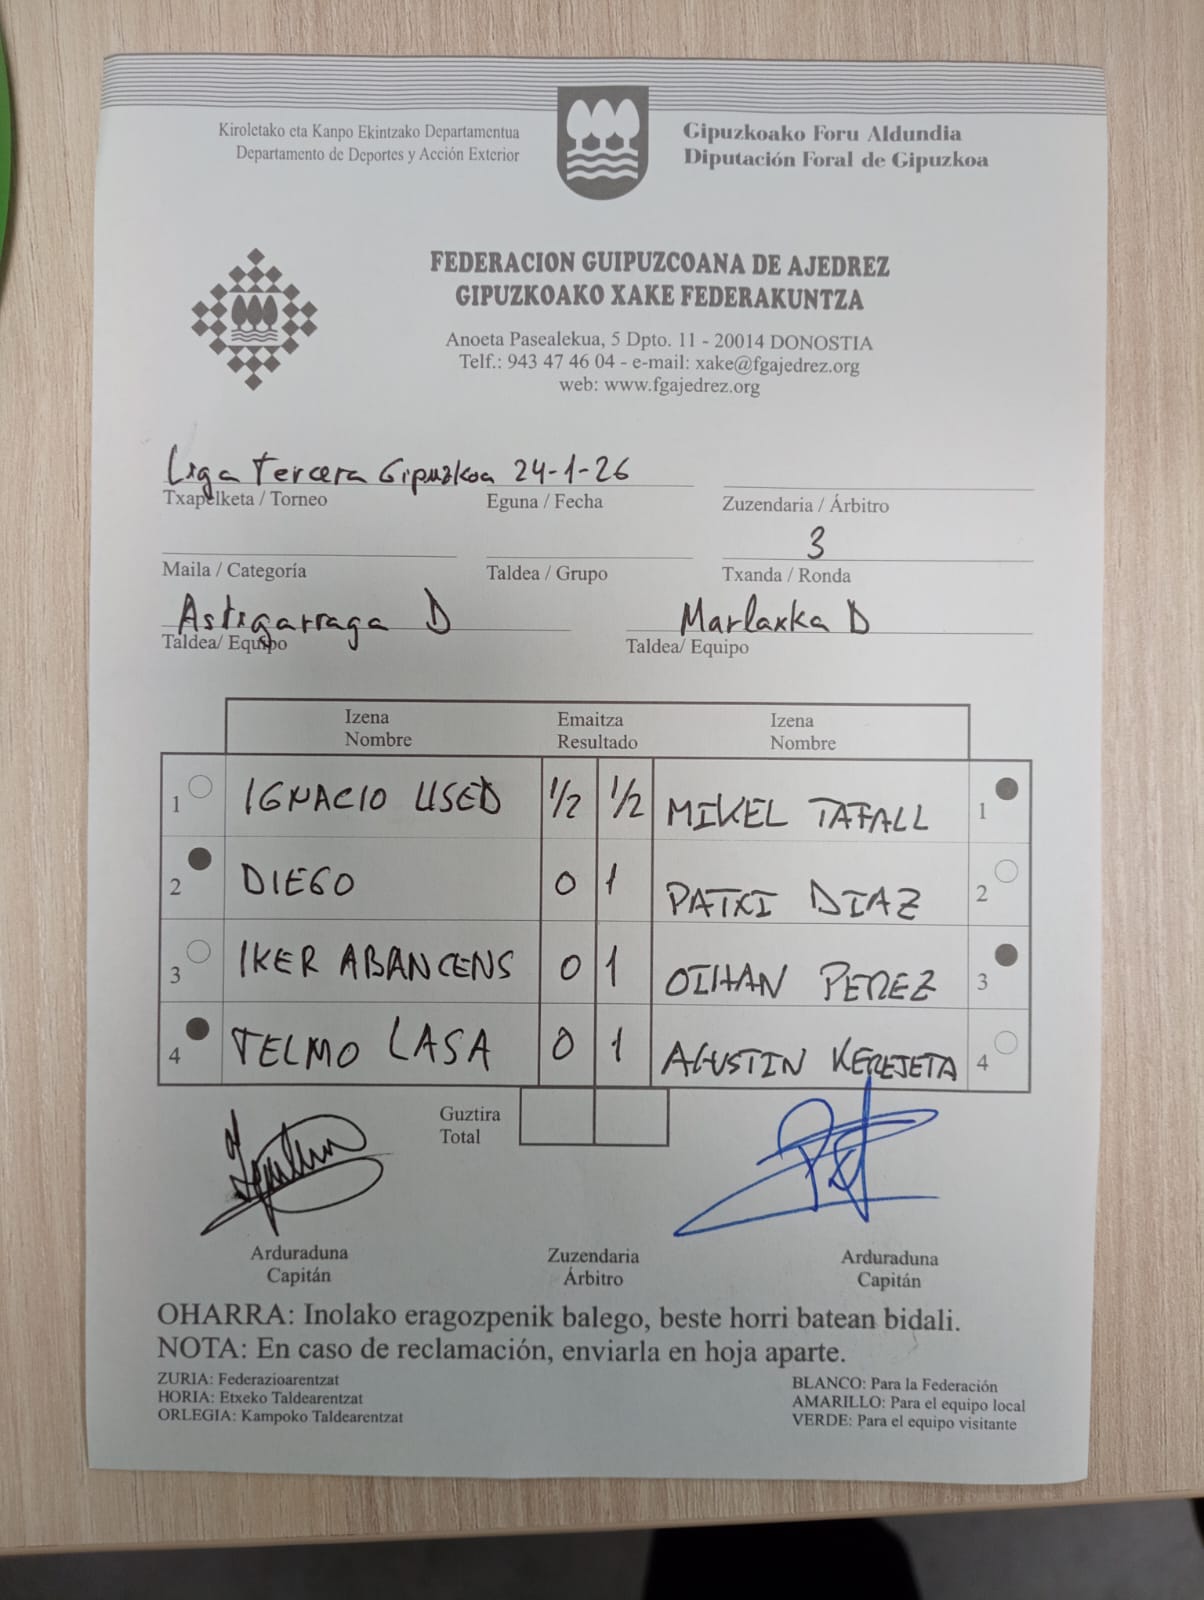 Kiroletako eta Kanpo Ekintzako Departamentua
Departamento de Deportes y Acción Exterior
Gipuzkoako Foru Aldundia
Diputación Foral de Gipuzkoa
FEDERACION GUIPUZCOANA DE AJEDREZ
GIPUZKOAKO XAKE FEDERAKUNTZA
Anoeta Pasealekua, 5 Dpto. 11 - 20014 DONOSTIA
Telf.: 943 47 46 04 - e-mail: xake@fgajedrez.org
web: www.fgajedrez.org
Liga Tercera Gipuzkoa 24-1-26
Txapelketa / Torneo Eguna / Fecha Zuzendaria / Árbitro
3
Maila / Categoría Taldea / Grupo Txanda / Ronda
Astigarraga D Marlaxka D
Taldea/ Equipo Taldea/ Equipo
Izena Emaitza Izena
Nombre Resultado Nombre
1 IGNACIO USED 1/2 1/2 MIKEL TAFALL 1
2 DIEGO 0 1 PATXI DIAZ 2
3 IKER ABANCENS 0 1 OIHAN PEREZ 3
4 TELMO LASA 0 1 AGUSTIN KEREJETA 4
Guztira
Total
Arduraduna Zuzendaria Arduraduna
Capitán Árbitro Capitán
OHARRA: Inolako eragozpenik balego, beste horri batean bidali.
NOTA: En caso de reclamación, enviarla en hoja aparte.
ZURIA: Federazioarentzat
HORIA: Etxeko Taldearentzat
ORLEGIA: Kampoko Taldearentzat
BLANCO: Para la Federación
AMARILLO: Para el equipo local
VERDE: Para el equipo visitante